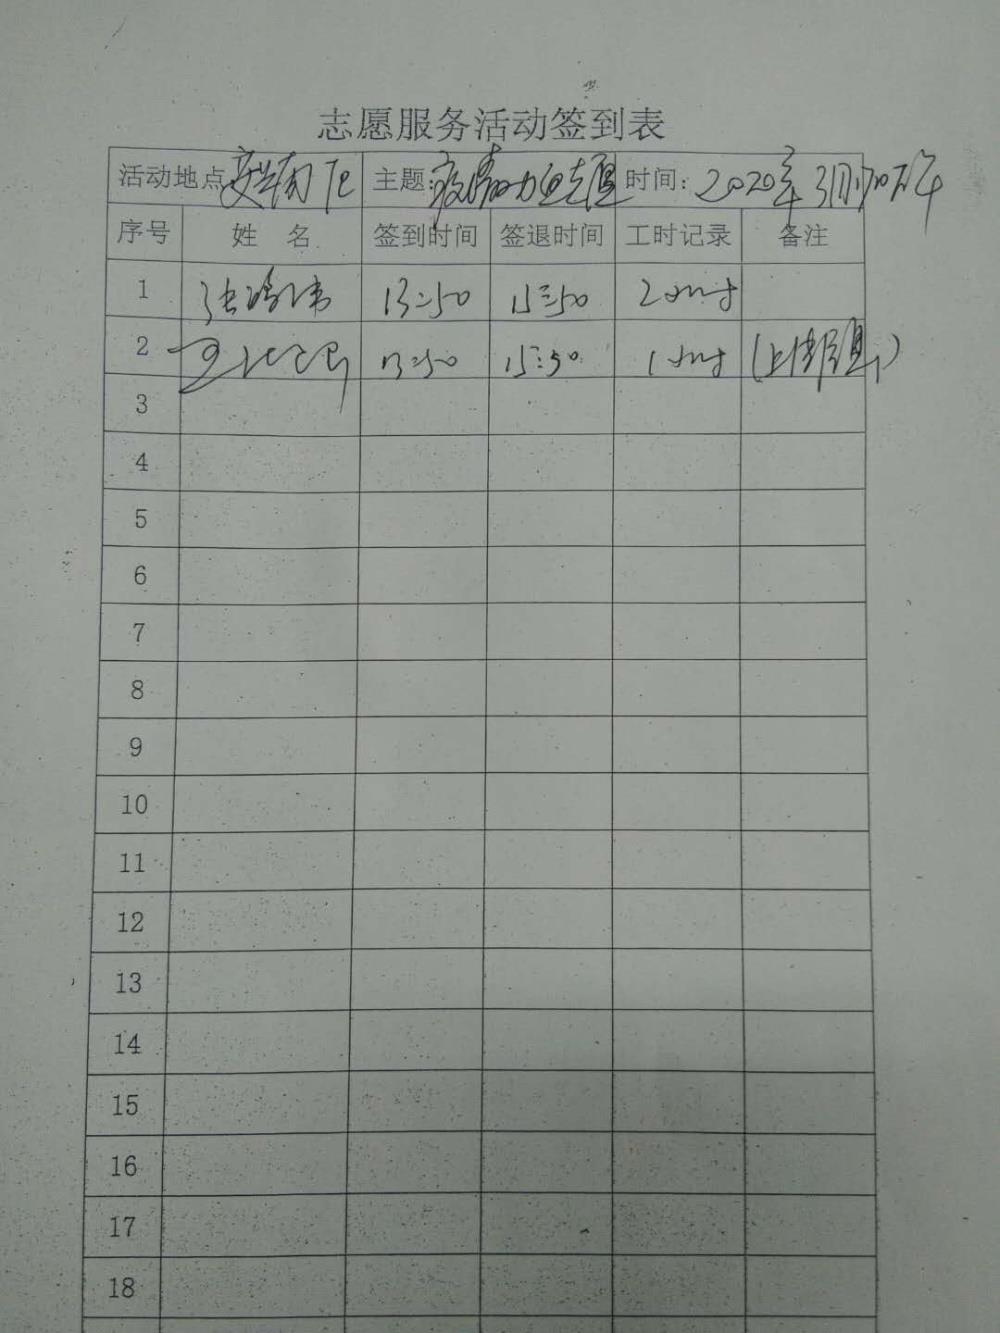 志愿服务活动签到表
活动地点 主题: 时间: 2020年3月
序号 姓 名 签到时间 签退时间 工时记录 备注
1 13:50 15:50 2小时
2 13:50 15:50 1小时
3
4
5
6
7
8
9
10
11
12
13
14
15
16
17
18